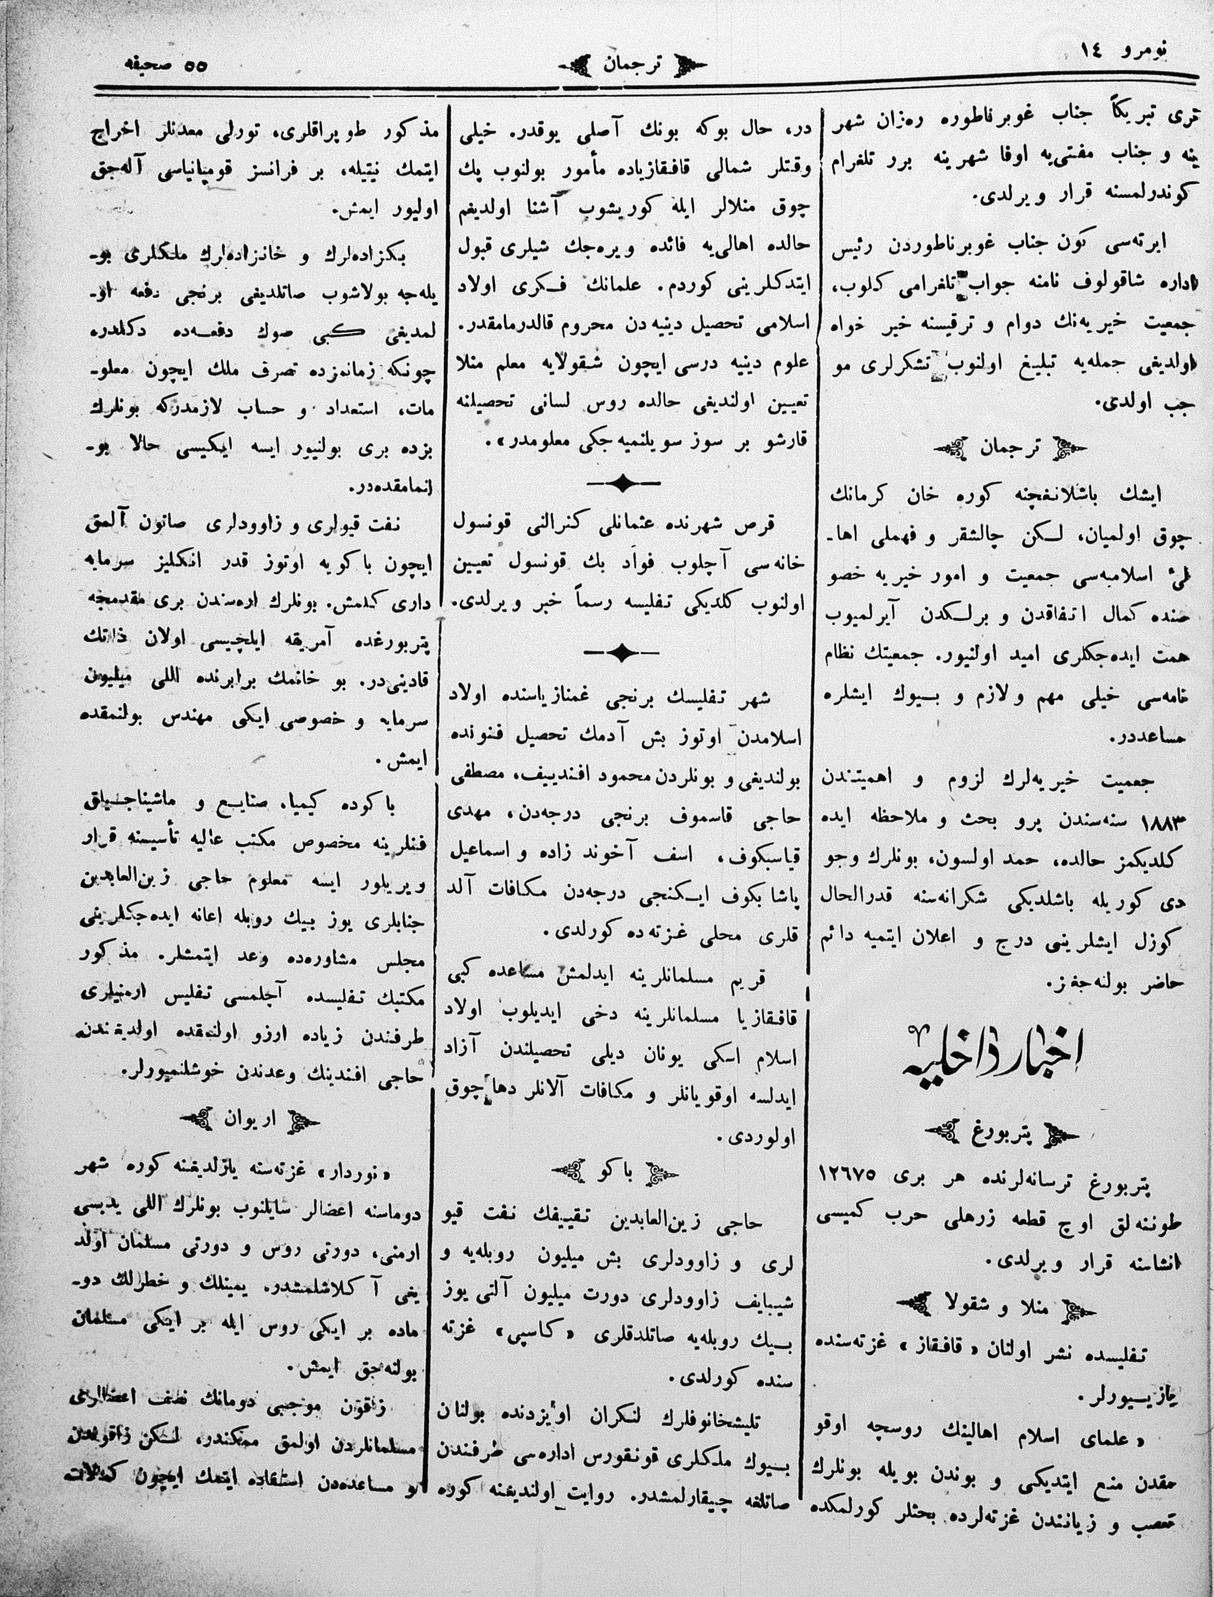 نومرو ١٤
ترجمان
٥٥ صحيفه
قری تبريكاً جناب غوبرناطوره رەزان شهر
ينه و جناب مفتی‌يه اوفا شهرينه برر تلغرام
كوندرلمسنه قرار ويرلدی.
ايرته‌سی كون جناب غوبرناطوردن رئيس
اداره شاقولوف نامنه جواب تلغرامی كلوب،
جمعيت خيريه‌نك دوام و ترقيسنه خير خواه
اولديغی جمله‌يه تبليغ اولنوب تشكرلری مو
جب اولدی.
ترجمان
ايشك باشلانغچنه كوره خان كرمانك
چوق اولميان، لكن چالشقر و فهملی اها-
لئ اسلاميه‌سی جمعيت و امور خيريه خصو
صنده كمال اتفاقدن و برلكدن آيرلميوب
همت ايده‌جكلری اميد اولنيور. جمعيتك نظام
نامه‌سی خيلی مهم ولازم و بيوك ايشلره
مساعددر.
جعميت خيريه‌لرك لزوم و اهميتندن
١٨٨٣ سنه‌سندن برو بحث و ملاحظه ايده
كلديكمز حالده، حمد اولسون، بونلرك وجو
دی كوريله باشلديكی شكرانه‌سنه قدرالحال
كوزل ايشلرينی درج و اعلان ايتميه دائم
حاضر بولنه‌جغز.
اخبار داخليه
پتربورغ
پتربورغ ترسانه‌لرنده هر بری ١٢٦٧٥
طوننه‌لق اوچ قطعه زرهلی حرب كميسی
انشاسنه قرار ويرلدی.
منلا و شقولا
تفليسده نشر اولنان «قافقاز» غزته‌سنده
يازييورلر.
«علمای اسلام اهالينك روسچه اوقو
مقدن منع ايتديكی و بوندن بويله بونلرك
تعصب و زيانندن غزته‌لرده بحثلر كورلمكده
در، حال بوكه بونك آصلی يوقدر. خيلی
وقتلر شمالی قافقازياده مأمور بولنوب پك
چوق منلالر ايله كوريشوب آشنا اولديغم
حالده اهالی‌يه فائده ويره‌جك شيلری قبول
ايتدكلرينی كوردم. علمانك فكری اولاد
اسلامی تحصيل دينيه‌دن محروم قالدرمامقدر.
علوم دينيه درسی ايچون شقولايه معلم منلا
تعيين اولنديغی حالده روس لسانی تحصيلنه
قارشو بر سوز سويلنميه‌جكی معلومدر».
قرص شهرنده عثمانلی كنرالنی قونسول
خانه‌سی آچلوب فواد بك قونسول تعيين
اولنوب كلديكی تفليسه رسماً خبر ويرلدی.
شهر تفليسك برنجی غمنازياسنده اولاد
اسلامدن اوتوز بش آدمك تحصيل فنونده
بولنديغی و بونلردن محمود افندييف، مصطفی
حاجی قاسموف برنجی درجه‌دن، مهدی
قياسبكوف، اسف آخوند زاده و اسماعيل
پاشا بكوف ايكنجی درجه‌دن مكافات آلد
قلری محلی غزته‌ده كورلدی.
قريم مسلمانلرينه ايدلمش مساعده كبی
قافقازيا مسلمانلرينه دخی ايديلوب اولاد
اسلام اسكی يونان ديلی تحصيلندن آزاد
ايدلسه اوقويانلر و مكافات آلانلر دها چوق
اولوردی.
باكو
حاجی زين‌العابدين تقييفك نفت قيو
لری و زاوودلری بش ميليون روبله‌يه و
شيبايف زاوودلری دورت ميليون آلتی يوز
بيك روبله‌يه صاتلدقلری «كاسپی» غزته
سنده كورلدی.
تليشخانوفلرك لنكران اويزدنده بولنان
بيوك ملكلری قونقورس اداره‌سی طرفندن
صاتلغه چيقارلمشدر. روايت اولنديغنه كوره
مذكور طوپراقلری، تورلی معدنلر اخراج
ايتمك نيتيله، بر فرانسز قومپانياسی آله‌جق
اوليور ايمش.
بكزاده‌لرك و خانزاده‌لرك ملكلری بو-
يله‌جه بولاشوب صاتلديغی برنجی دفعه او-
لمديغی كبی صوك دفعه‌ده دكلدره
چونكه زمانمزده تصرف ملك ايچون معلو-
مات، استعداد و حساب لازمدركه بونلرك
بزده بری بولنيور ايسه ايكيسی حالا بو-
لنمامقده‌در.
نفت قيولری و زاوودلری صاتون آلمق
ايچون باكويه اوتوز قدر انكليز سرمايه
داری كلمش. بونلرك اره‌سندن بری مقدمجه
پتربورغده آمريقه ايلچيسی اولان ذاتك
قادينی‌در. بو خانمك برابرنده اللی ميليون
سرمايه و خصوصی ايكی مهندس بولنمقده
ايمش.
باكوده كيميا، صنايع و ماشيناجيلق
فنلرينه مخصوص مكتب عاليه تأسيسنه قرار
ويريلور ايسه معلوم حاجی زين‌العابدين
جنابلری يوز بيك روبله اعانه ايده‌جكلرينی
مجلس مشاوره‌ده وعد ايتمشلر. مذكور
مكتبك تفليسده آچلمسی تفليس ارمنيلری
طرفندن زياده ارزو اولنمقده اولديغندن
حاجی افندينك وعدندن خوشلنميورلر.
اريوان
«نوردار» غزته‌سنه يازلديغنه كوره شهر
دوماسنه اعضالر سايلنوب بونلرك اللی يديسی
ارمنی، دورتی روس و دورتی مسلمان اولد
يغی آكلاشلمشدر. يمينلك و خطرلك دو-
ماده بر ايكی روس ايله بر ايكی مسلمان
بولنه‌جق ايمش.
زاقون موجبی دومانك نصف اعضالری
مسلمانلردن اولمق ممكندر، لكن زاقوندن
و مساعده‌دن استفاده ايتمك ايچون كمالات